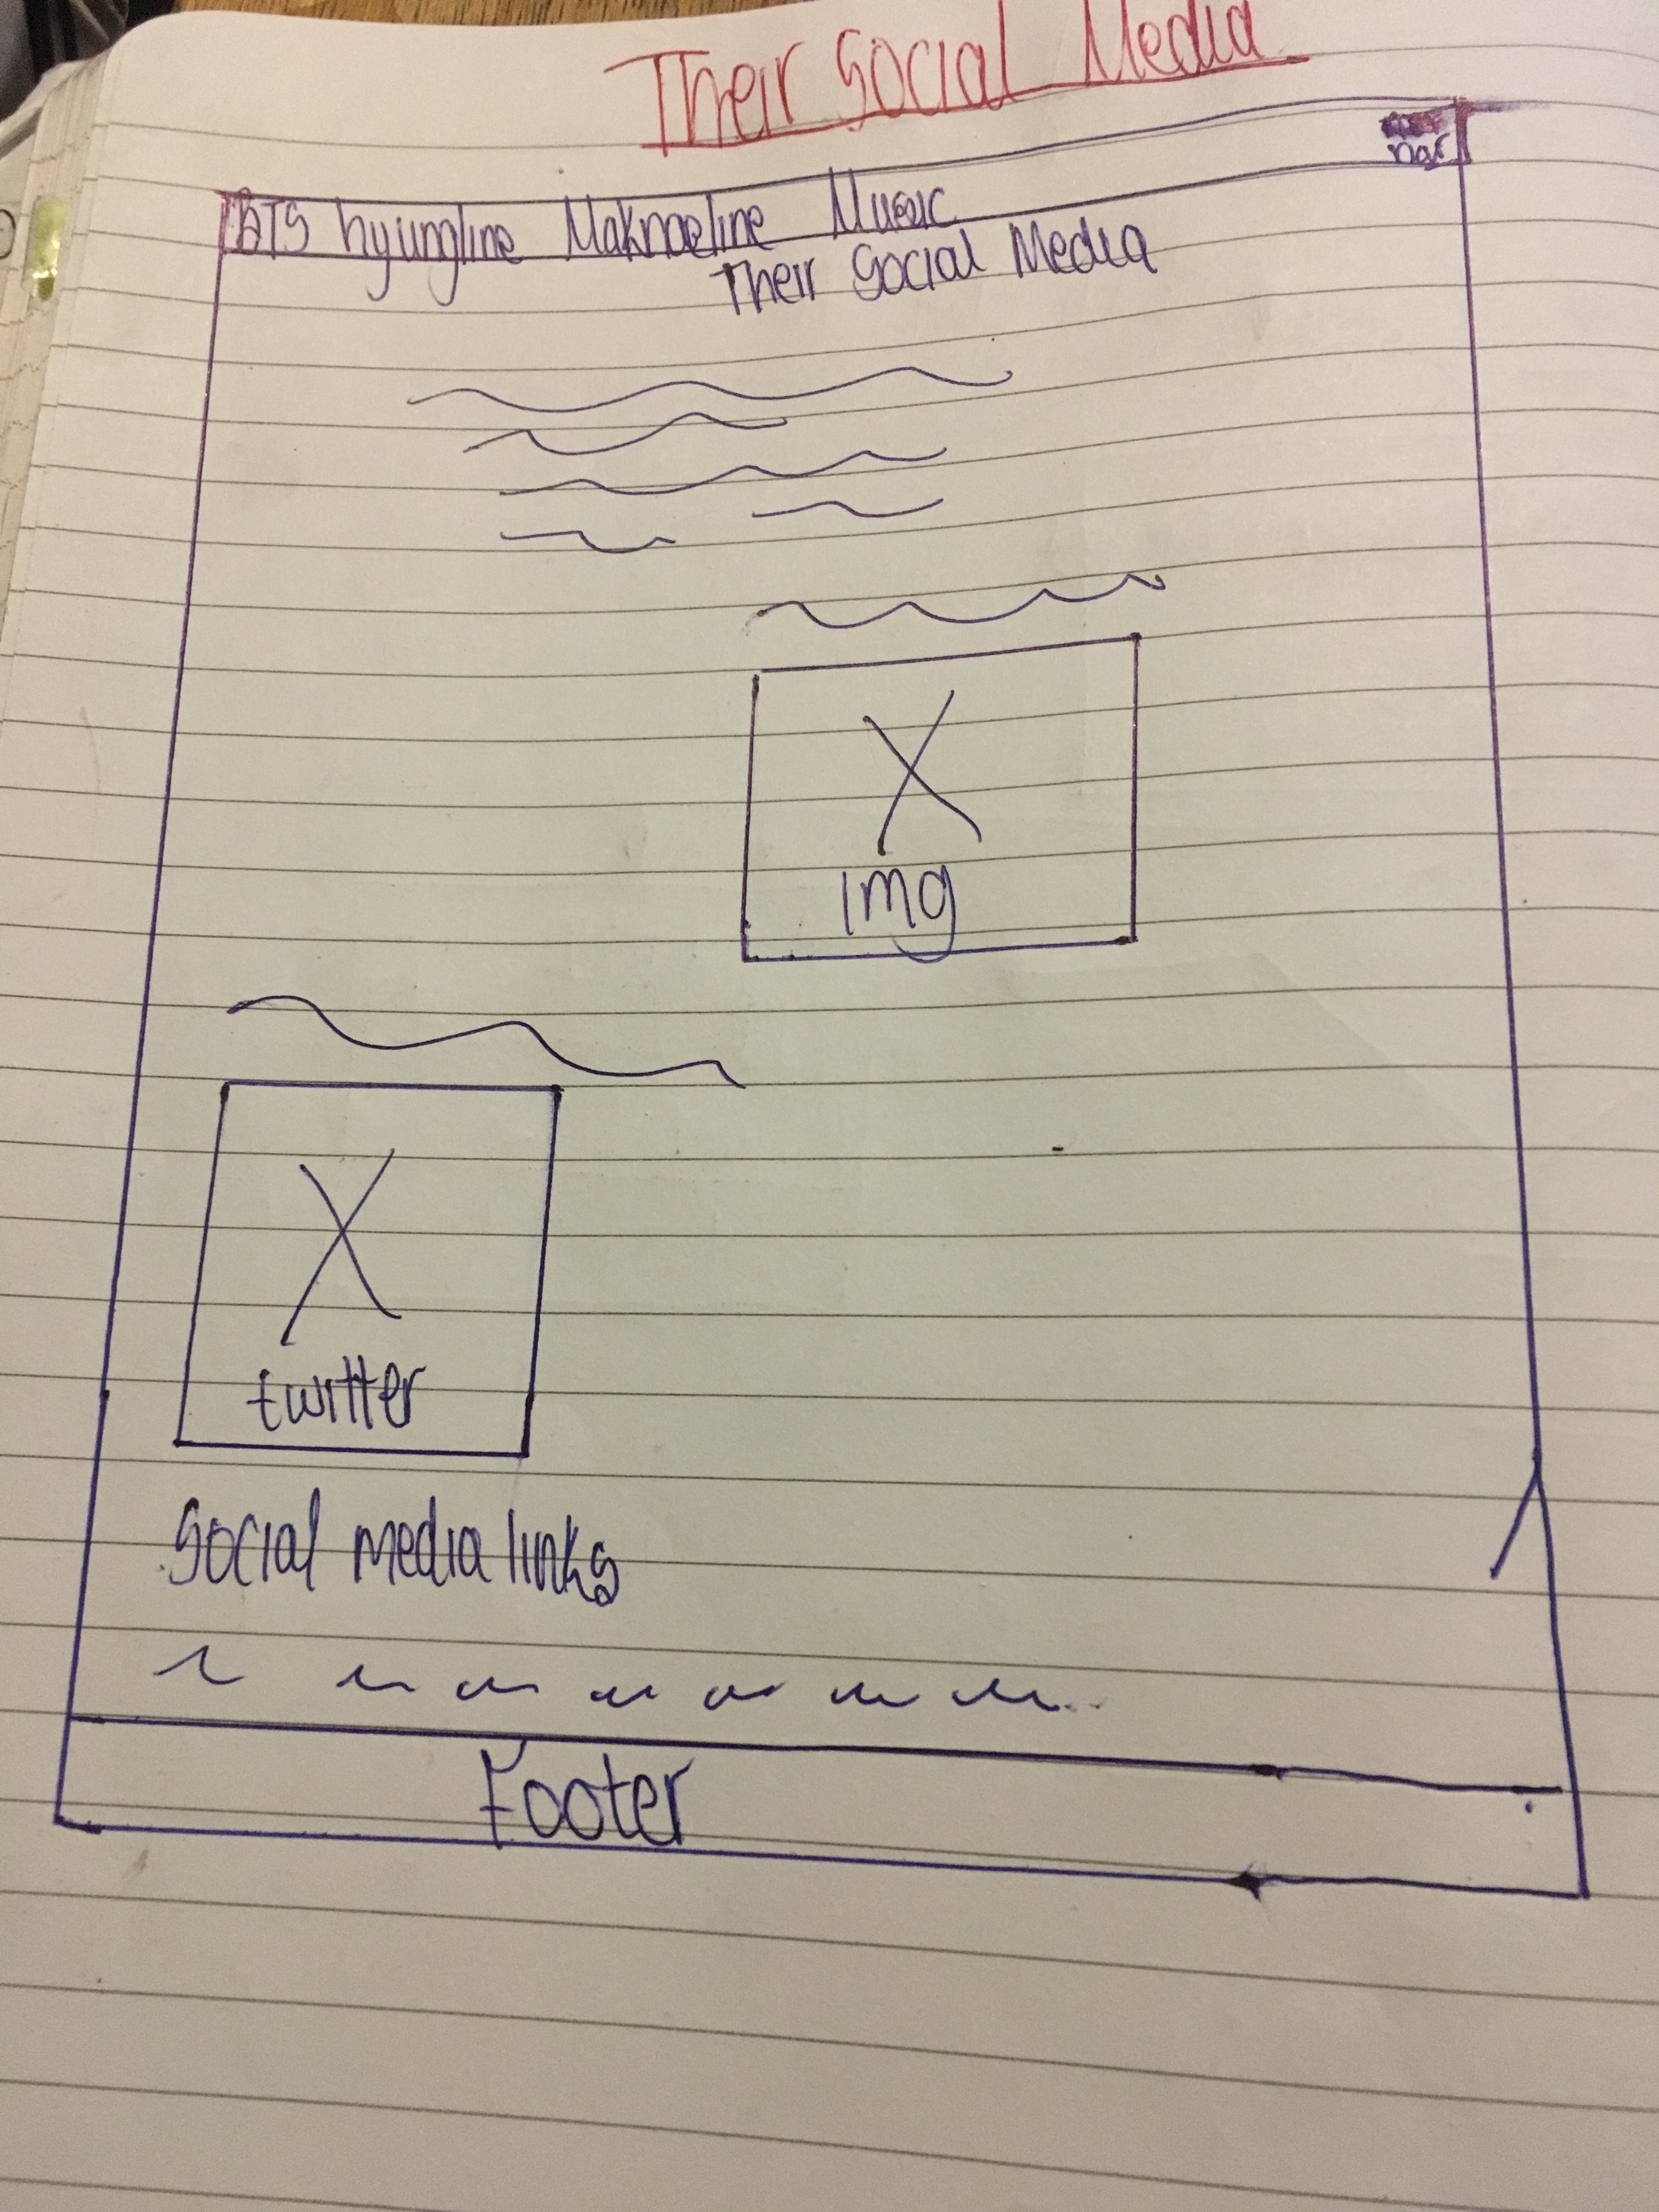 Their Social Media
nar
BTS hyungline Maknaeline Music
Their Social Media
img
twitter
Social media links
Footer